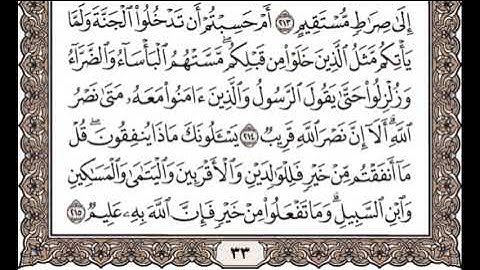 إِلَىٰ صِرَٰطٍ مُّسْتَقِيمٍ ٢١٣ أَمْ حَسِبْتُمْ أَن تَدْخُلُوا۟ ٱلْجَنَّةَ وَلَمَّا
يَأْتِكُم مَّثَلُ ٱلَّذِينَ خَلَوْا۟ مِن قَبْلِكُم ۖ مَّسَّتْهُمُ ٱلْبَأْسَآءُ وَٱلضَّرَّآءُ
وَزُلْزِلُوا۟ حَتَّىٰ يَقُولَ ٱلرَّسُولُ وَٱلَّذِينَ ءَامَنُوا۟ مَعَهُۥ مَتَىٰ نَصْرُ
ٱللَّهِ ۗ أَلَآ إِنَّ نَصْرَ ٱللَّهِ قَرِيبٌ ٢١٤ يَسْـَٔلُونَكَ مَاذَا يُنفِقُونَ ۖ قُلْ
مَآ أَنفَقْتُم مِّنْ خَيْرٍ فَلِلْوَٰلِدَيْنِ وَٱلْأَقْرَبِينَ وَٱلْيَتَـٰمَىٰ وَٱلْمَسَـٰكِينِ
وَٱبْنِ ٱلسَّبِيلِ ۗ وَمَا تَفْعَلُوا۟ مِنْ خَيْرٍ فَإِنَّ ٱللَّهَ بِهِۦ عَلِيمٌ ٢١٥
٣٣